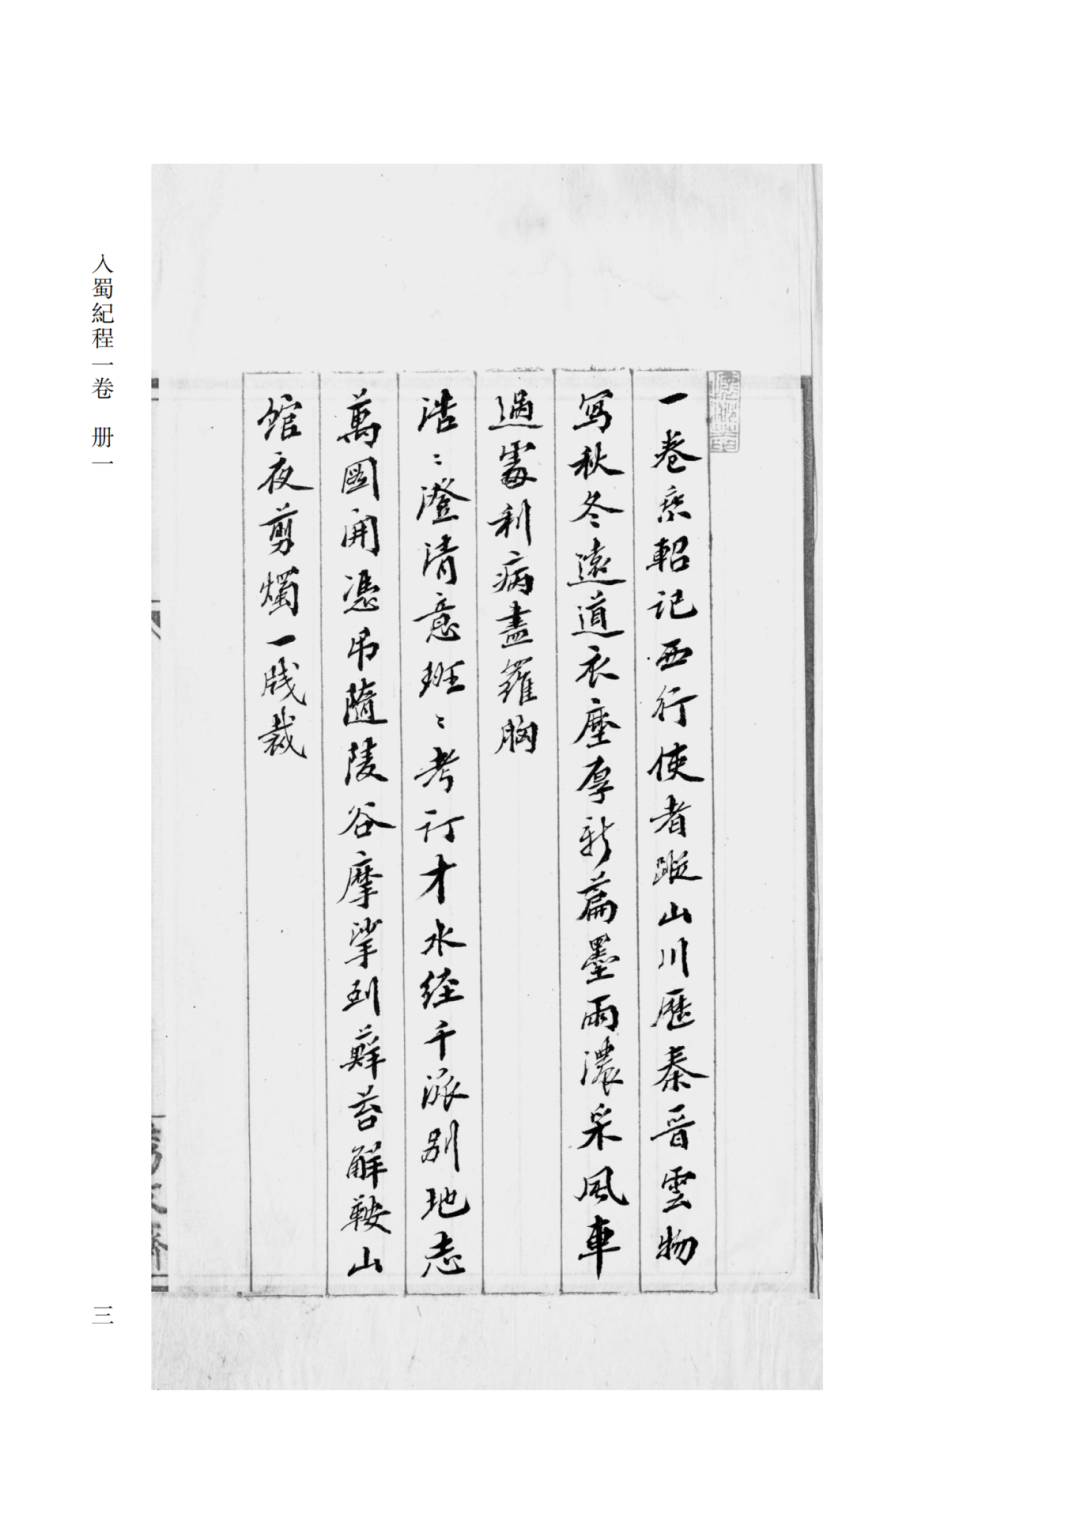 一卷乘軺記西行使者蹤山川歷秦晉雲物
寫秋冬遠道衣塵厚新篇墨雨濃采風車
過處利病盡羅胸
浩〻澄清意班〻考訂才水経千派別地志
萬國開憑弔隨陵谷摩挲到蘚苔解鞍山
館夜剪燭一牋裁
入蜀紀程一卷 册一
三